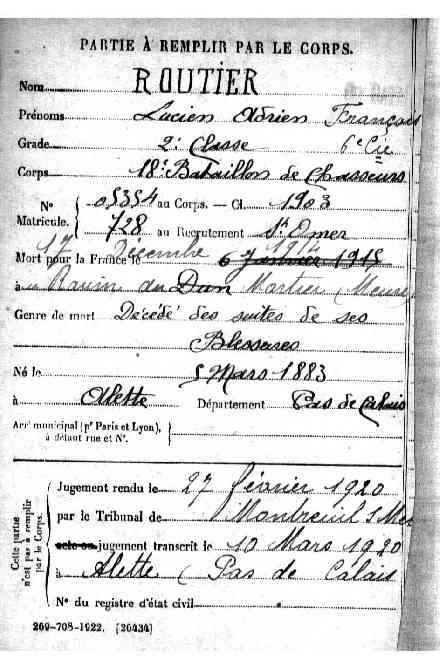 PARTIE À REMPLIR PAR LE CORPS.
Nom ROUTIER
Prénoms Lucien Adrien François
Grade 2e Classe 6e Cie
Corps 18e Bataillon de Chasseurs
N° Matricule. { 05354 au Corps. — Cl. 1903
728 au Recrutement St Omer
17 Décembre 1914
Mort pour la France le 6 Janvier 1915
à Ravin du Dan Mortier (Meuse
Genre de mort Décédé des suites de ses
Blessures
Né le 5 Mars 1883
à Alette Département Pas de Calais
Arrt municipal (pr Paris et Lyon),
à défaut rue et N°.
Cette partie n'est pas à remplir par le Corps.
Jugement rendu le 27 février 1920
par le Tribunal de Montreuil s/Mer
acte ou jugement transcrit le 10 Mars 1920
à Alette (Pas de Calais
N° du registre d'état civil
269-708-1922. [26434]